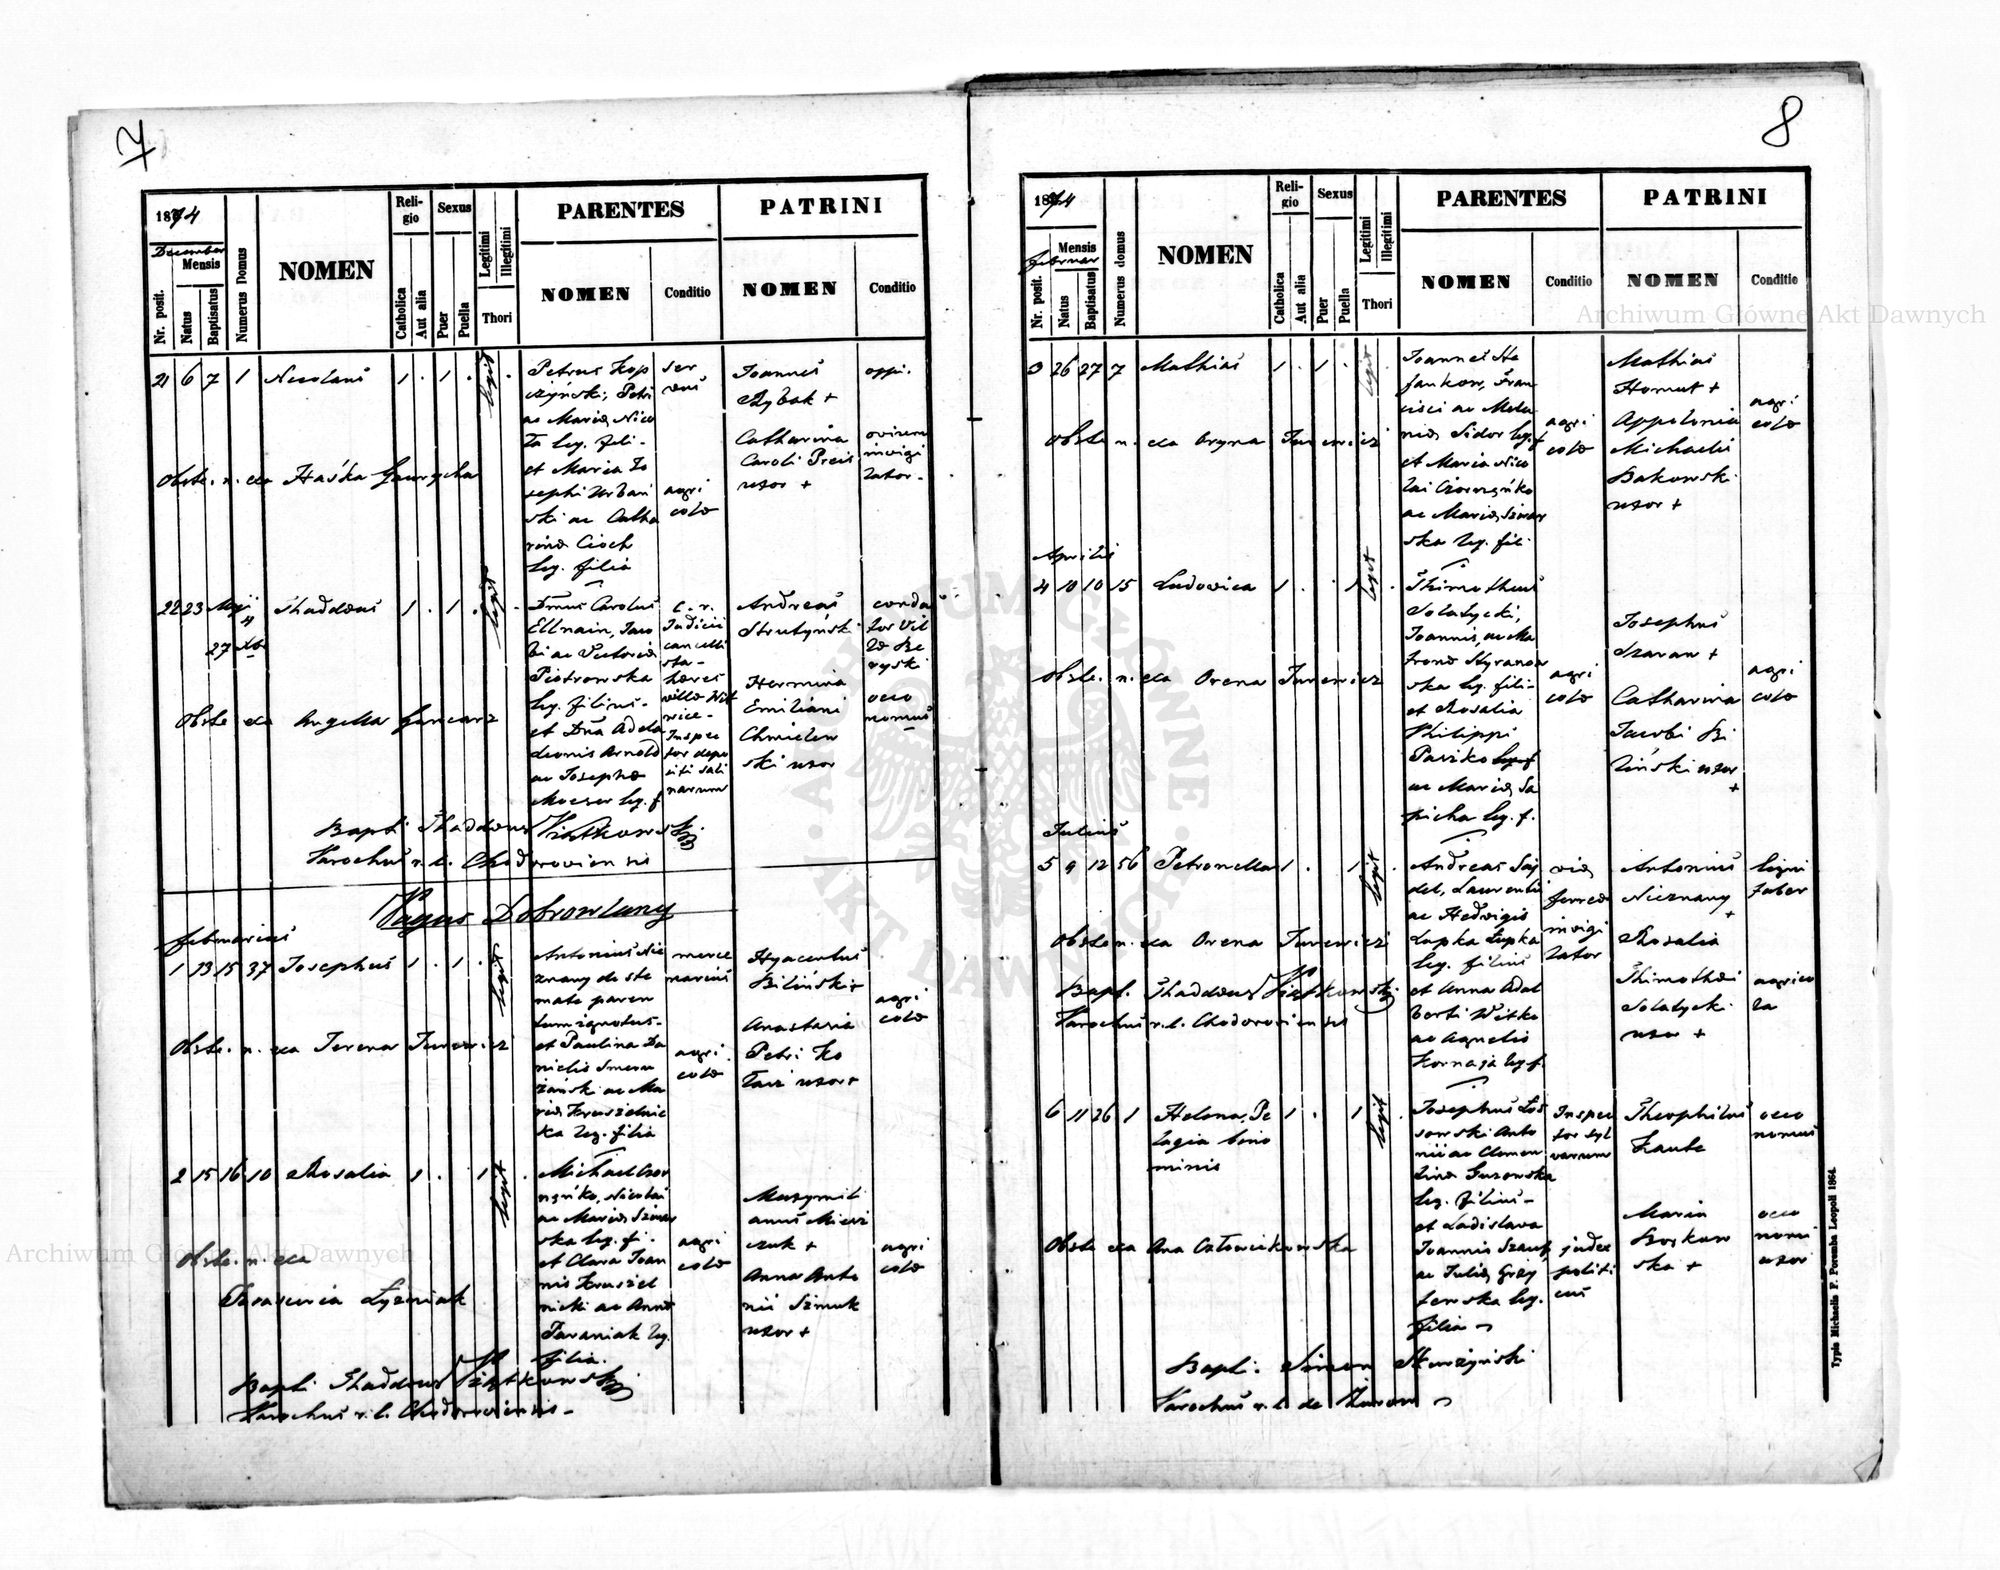 7
1874
December
Mensis
Nr. posit.
Natus
Baptisatus
Numerus Domus
NOMEN
Religio
Catholica
Aut alia
Sexus
Puer
Puella
Legitimi
Illegitimi
Thori
PARENTES
NOMEN
Conditio
PATRINI
NOMEN
Conditio
21 6 7 1 Nicolaus 1 . 1 . legit
Petrus Kop
czyński, Petri
ac Maria Nico
la leg. fili-
et Maria Jo
sephi Urbań
ski ac Catha
rina Cioch
leg. filia
agri
cola
Joannes
Rybak +
Catharina
Caroli Preis
uxor +
oppi.
Obste. n. exa Haśka
22 23 27 Thaddeus 1 . 1 . legit
Dnus Carolus
Ellnain, Jaco
bi ac Victoria
Piotrowska
leg. filius-
et Dna Adela
Leonis Arnold
ac Josepha
Moeser leg. f
c. r.
Judicii
cancelli
sta-
haeres
villa
Inspec
tor depo
siti sali
narum
Andreas
Strutyński
Hermina
Emiliani
Chmielew
ski uxor
oeco
nomus
Obste exa Angella Gancarz
Bapt. Thaddeus Piątkowski
Parochus r. l. Chodoroviensis
Vagus Dobrowlany
Februarius
1 13 15 37 Josephus 1 . 1 . legit
Antonius Nie
znany de ste
mate paren
tum ignotus-
et Paulina Da
nielis
ac Ma
ria Kruszelnic
ka leg. filia
merce
narius
agri
cola
Hyacentus
Biliński +
Anastasia
Petri Ko
uxor +
agri
cola
Obste. n. exa Jerena Jurewicz
2 15 16 10 Rosalia 1 . 1 legit
Michael Czor
nyńko, Nicolai
ac Maria Szwar
ska leg. fi-
et Clara Joan
nis Kruszel
nicki ac Anna
Taraniak leg.
filia.
agri
cola
Maxymili
anus
+
Anna Anto
nii Szmuk
uxor +
agri
cola
Obste. n. exa
Bapt. Thaddeus Piątkowski
Parochus r. l. Chodoroviensis-
8
1874
Februar
Mensis
Nr. posit.
Natus
Baptisatus
Numerus domus
NOMEN
Religio
Catholica
Aut alia
Sexus
Puer
Puella
Legitimi
Illegitimi
Thori
PARENTES
NOMEN
Conditio
PATRINI
NOMEN
Conditio
3 26 27 7 Mathias 1 . 1 . legit
Joannes Ste
fankow, Fran
cisci ac Mela
nia Sidor leg. f
et Maria Nico
lai Czornyńko
ac Maria Szwar
ska leg. fili.
agri
cola
Mathias
Homut +
Appolonia
Michaelis
Bakowski
uxor +
agri
cola
Obste n. exa Oryna Jurewicz
Aprilis
4 10 10 15 Ludovica 1 . 1 legit
Thimotheus
Solatycki,
Joannis, ac Ma
trona
ska leg. fili-
et Rosalia
Philippi
Paszko leg. f
ac Maria Sa
picha leg. f.
agri
cola
Josephus
Szaran +
Catharina
Jacobi Bi
liński uxor
+
agri
cola
Obste. n. exa Orena Jurewicz
Julius
5 9 12 56 Petronella 1 . 1 legit
Andreas Saj
del, Laurentii
ac Hedvigis
Lupka Łupka
leg. filius
et Anna Adal
berti Witko
ac Agnelis
Kornaga leg. f.
via
ferrea
invigi
lator
Antonius
Nieznany
+
Rosalia
Thimothei
Solatycki
uxor +
ligni
faber
agrico
la
Obste n. exa Orena Jurewicz
Bapt. Thaddeus Piątkowski
Parochus r. l. Chodoroviensis
6 11 26 1 Helena, Pe
lagia bino
minis
1 . 1 legit
Josephus Łos
sowski Anto
nii ac Clemen
tina Guzowska
leg. filius-
et Ladislava
Joannis
ac Julia Gry
ferska leg.
filia
Inspec
tor syl
varum
judex
politi
cus
Theophilus
Laube
Maria
Borkow
ska +
oeco
nomus
oeco
nomi
uxor
Obste exa Ana
Bapt. Simon Skurzyński
Parochus r. l. de Żuraw
Typis Michaelis F. Poremba Leopoli 1864.
Archiwum Główne Akt Dawnych
Archiwum Główne Akt Dawnych
ARCHIWUM GŁÓWNE
AKT DAWNYCH